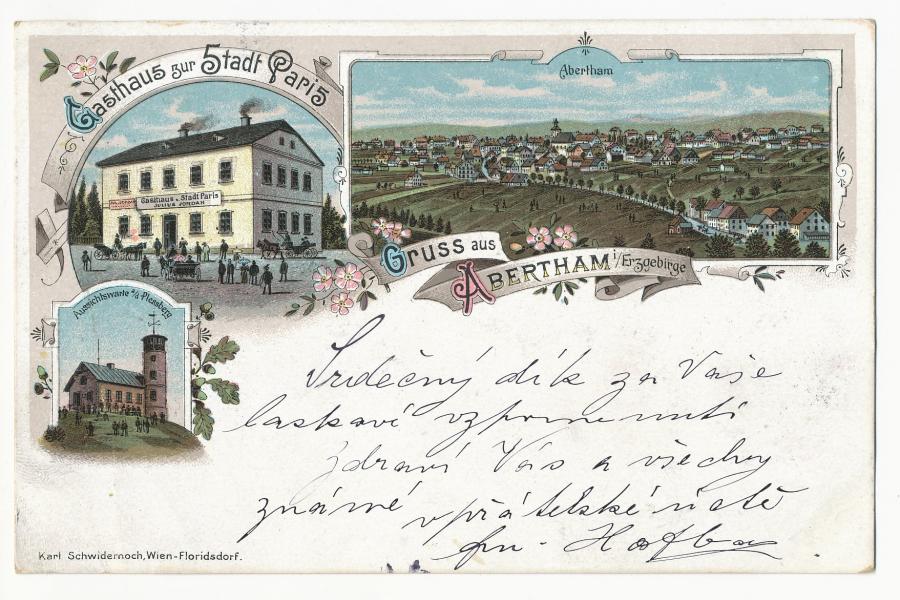 Gasthaus zur Stadt Paris
Gasthaus z. Stadt Paris
JULIUS JORDAN
Abertham
Gruss aus
ABERTHAM i/Erzgebirge
Aussichtswarte a/d Plessberg
Srdečný dík za Vaše
laskavé vzpomenutí
Zdraví Vás a všechny
známé v přátelské úctě
Karl Schwidernoch, Wien-Floridsdorf.